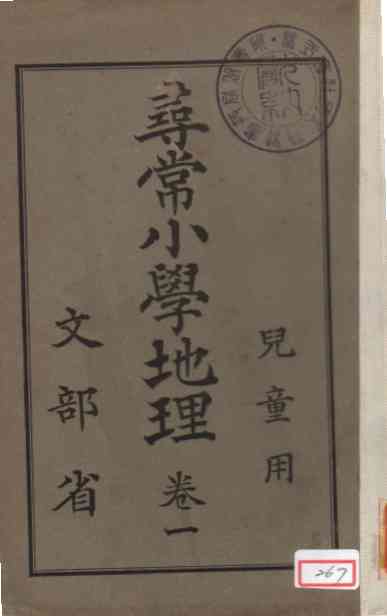 兒童用
尋常小學地理 卷一
文部省
267